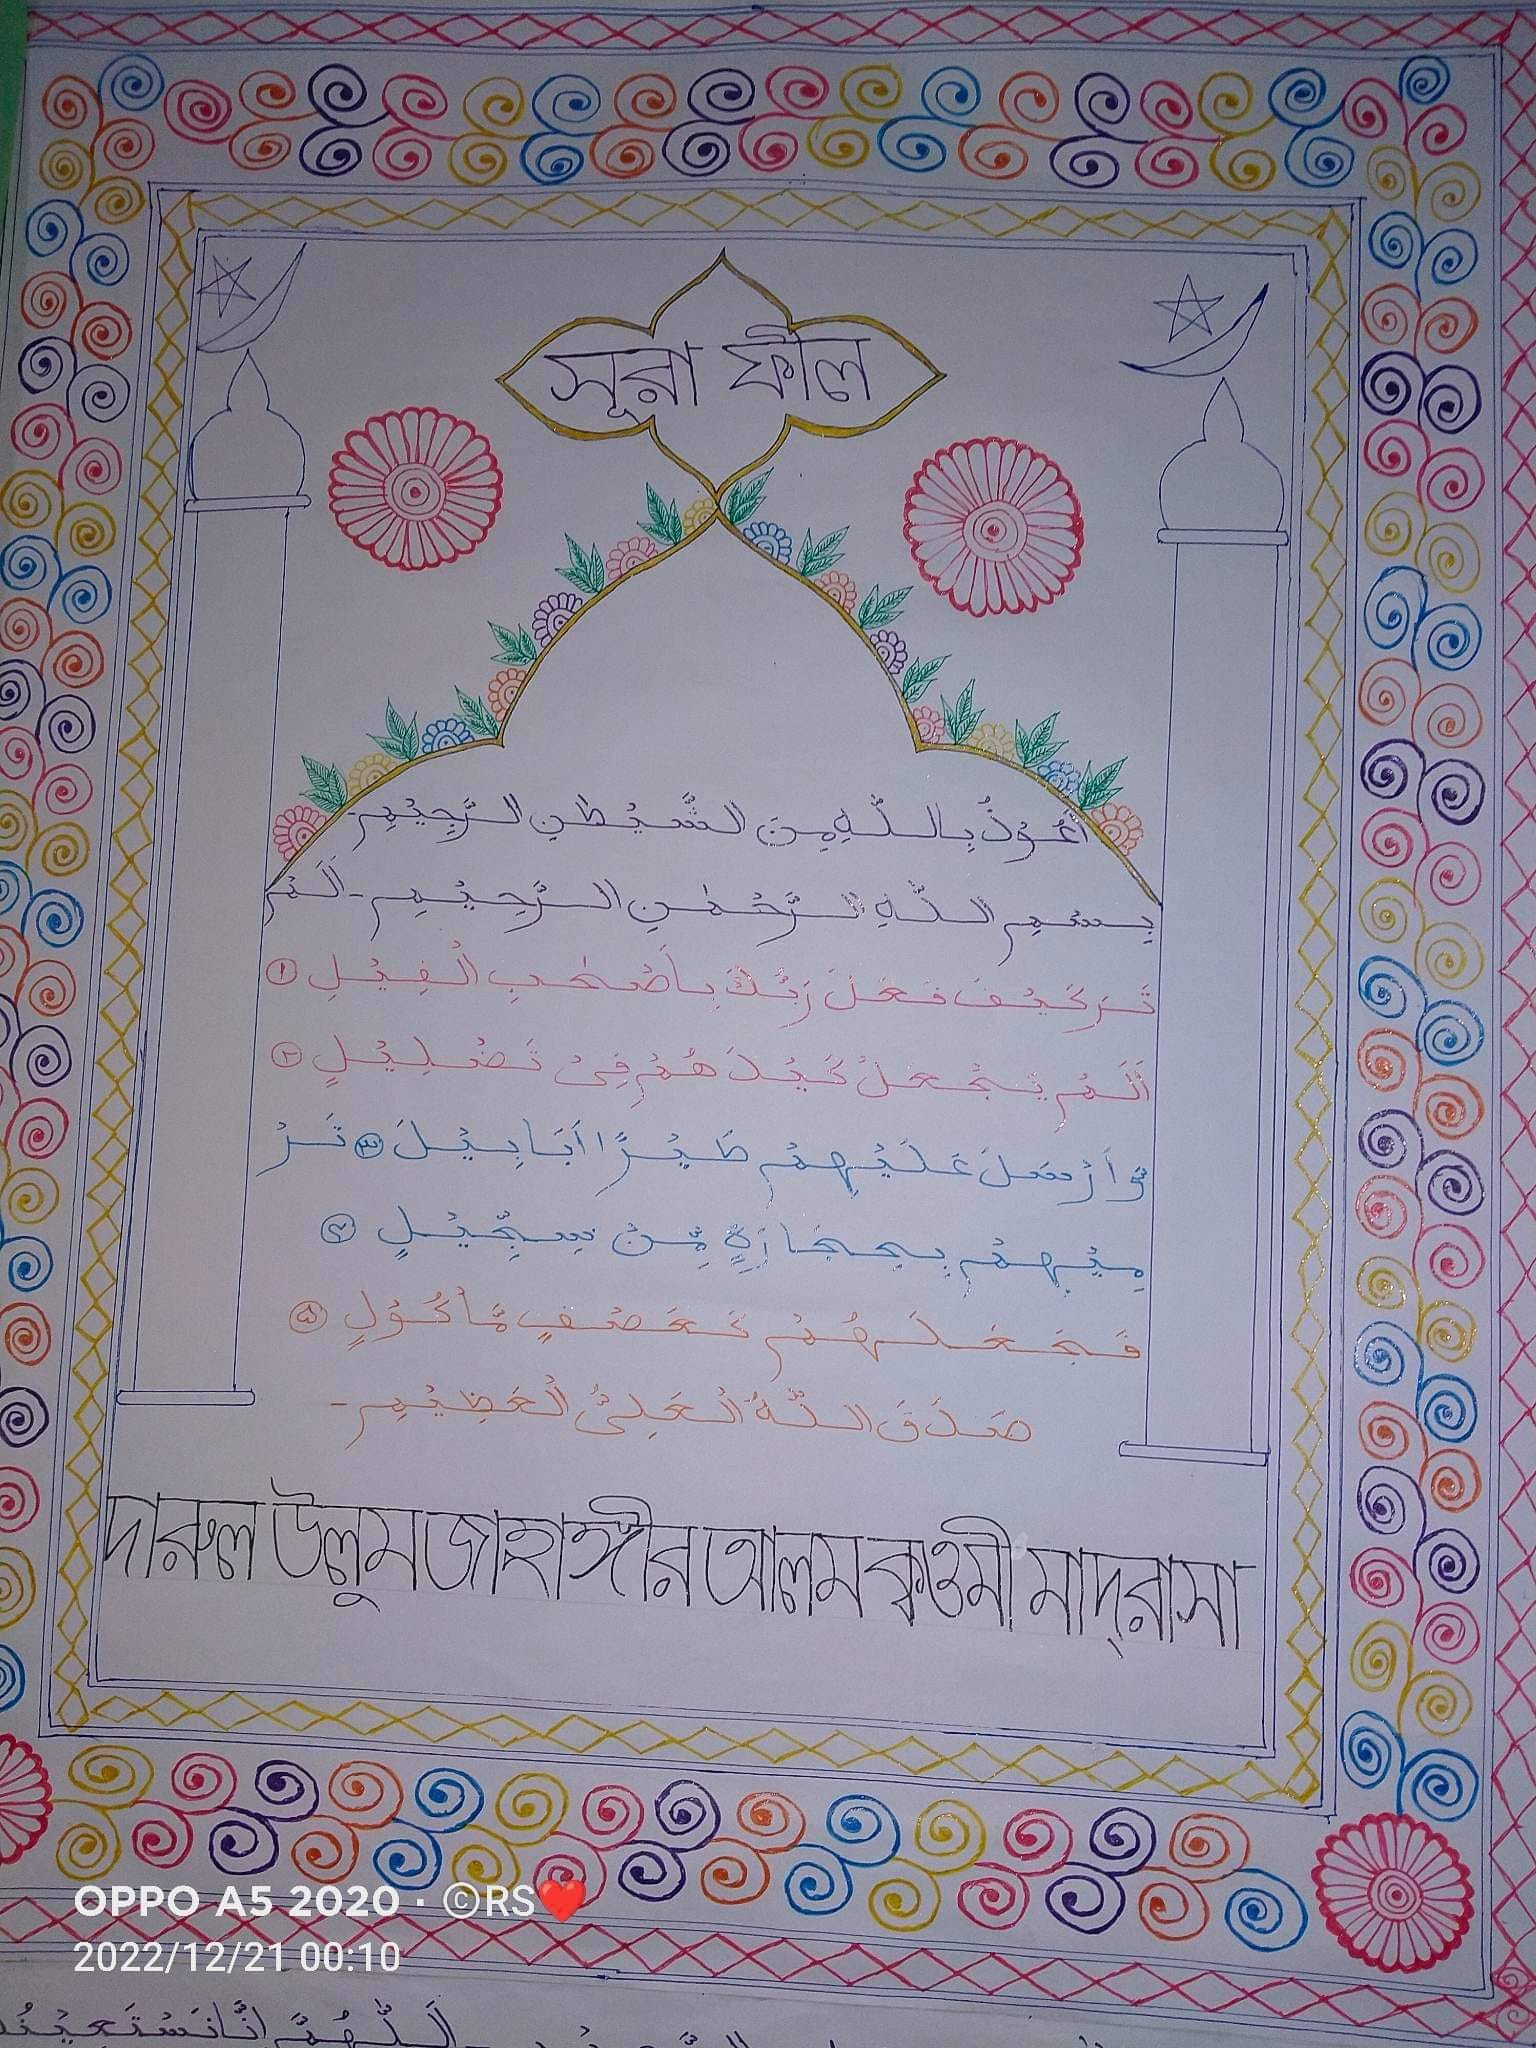 সূরা ফীল
اَعُوْذُ بِاللّٰهِ مِنَ الشَّيْطٰنِ الرَّجِيْمِ-
بِسْمِ اللّٰهِ الرَّحْمٰنِ الرَّحِيْمِ-اَلَمْ
تَرَكَيْفَ فَعَلَ رَبُّكَ بِاَصْحٰبِ الْفِيْلِ ①
اَلَمْ يَجْعَلْ كَيْدَ هُمْ فِىْ تَضْلِيْلٍ ②
وَّاَرْسَلَ عَلَيْهِمْ طَيْرًا اَبَابِيْلَ ③ تَرْ
مِيْهِمْ بِحِجَارَةٍ مِّنْ سِجِّيْلٍ ④
فَجَعَلَهُمْ كَعَصْفٍ مَّاْكُوْلٍ ⑤
صَدَقَ اللّٰهُ الْعَلِىُّ الْعَظِيْمِ-
দারুল উলুম জাহাঙ্গীর আলম ক্বওমী মাদ্রাসা
OPPO A5 2020 · ©RS❤
2022/12/21 00:10
اَللّٰهُمَّ اِنَّا نَسْتَعِيْنُ